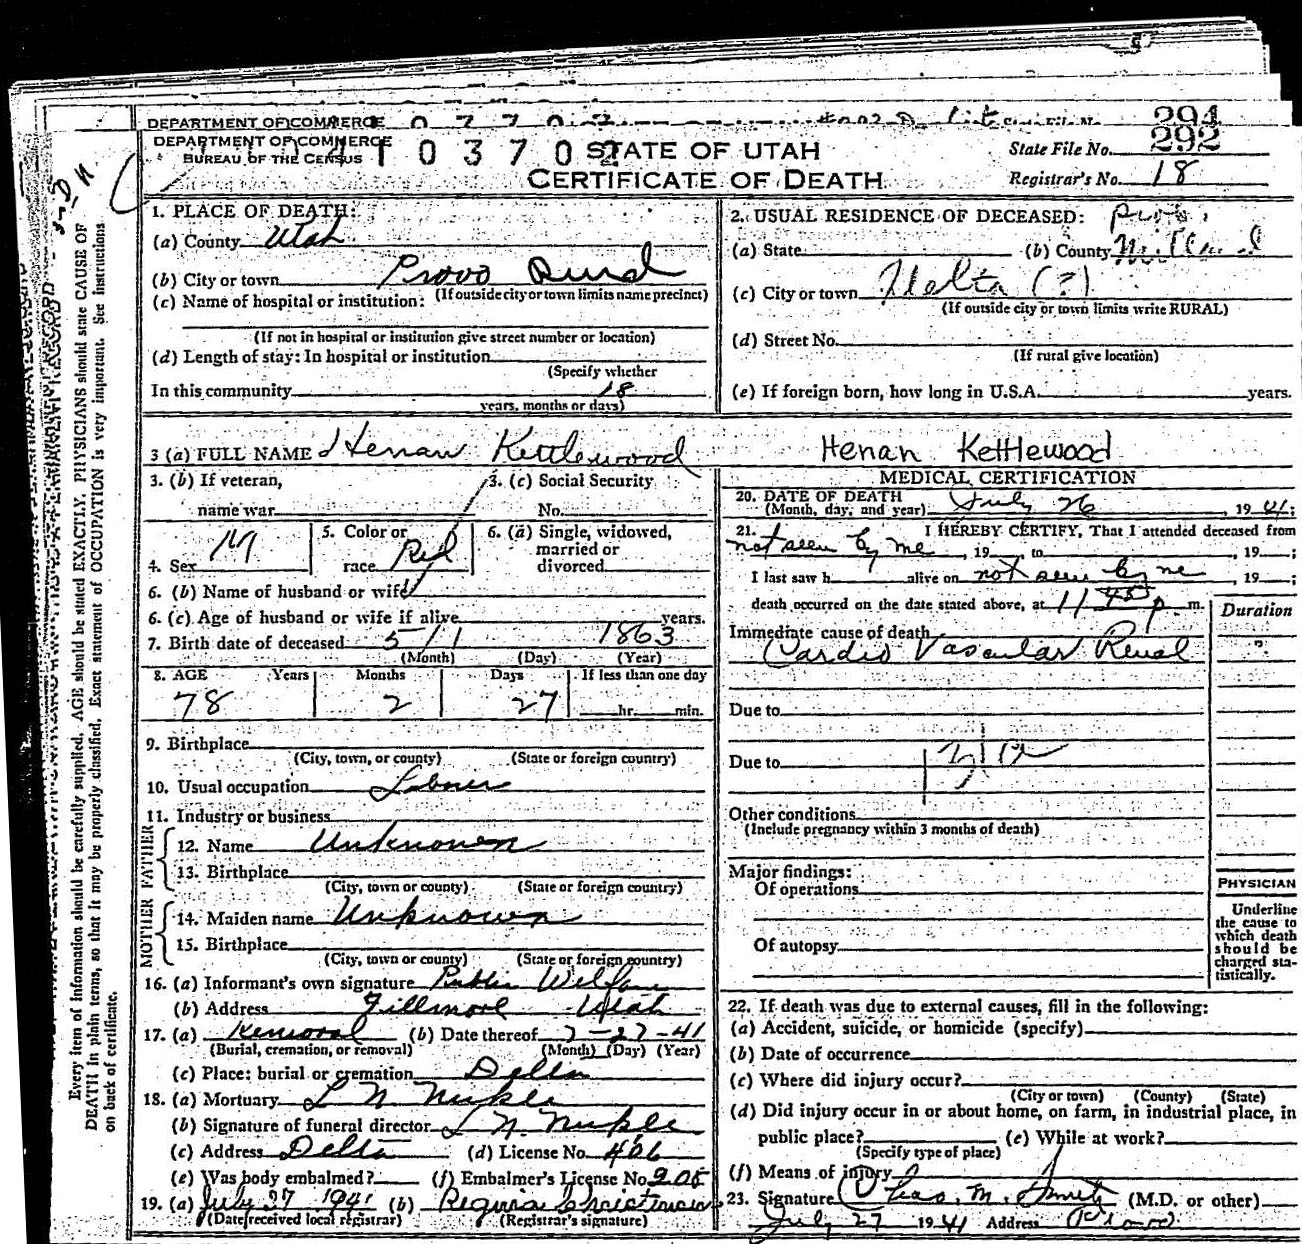 DEPARTMENT OF COMMERCE
294
DEPARTMENT OF COMMERCE
BUREAU OF THE CENSUS
10370
STATE OF UTAH
CERTIFICATE OF DEATH
State File No. 292
Registrar's No. 18
Every item of information should be carefully supplied. AGE should be stated EXACTLY. PHYSICIANS should state CAUSE OF
DEATH in plain terms, so that it may be properly classified. Exact statement of OCCUPATION is very important. See instructions
on back of certificate.
1. PLACE OF DEATH:
(a) County Utah
(b) City or town Provo Rural
(If outside city or town limits name precinct)
(c) Name of hospital or institution:
(If not in hospital or institution give street number or location)
(d) Length of stay: In hospital or institution
(Specify whether
In this community 18
years, months or days)
2. USUAL RESIDENCE OF DECEASED:
(a) State (b) County Millard
(c) City or town Delta (?)
(If outside city or town limits write RURAL)
(d) Street No.
(If rural give location)
(e) If foreign born, how long in U.S.A. years.
3 (a) FULL NAME Henan Kettlewood Henan Kettlewood
3. (b) If veteran,
name war
3. (c) Social Security
No.
4. Sex M
5. Color or
race Red
6. (a) Single, widowed,
married or
divorced
6. (b) Name of husband or wife
6. (c) Age of husband or wife if alive years.
7. Birth date of deceased 5 / 1 1863
(Month) (Day) (Year)
8. AGE Years Months Days If less than one day
78 2 27 hr. min.
9. Birthplace
(City, town, or county) (State or foreign country)
10. Usual occupation Laborer
11. Industry or business
FATHER
12. Name Unknown
13. Birthplace
(City, town or county) (State or foreign country)
MOTHER
14. Maiden name Unknown
15. Birthplace
(City, town or county) (State or foreign country)
16. (a) Informant's own signature Public Welfare
(b) Address Fillmore Utah
17. (a) Removal (b) Date thereof 7-27-41
(Burial, cremation, or removal) (Month) (Day) (Year)
(c) Place: burial or cremation Delta
18. (a) Mortuary L N Nickle
(b) Signature of funeral director L. N. Nickle
(c) Address Delta (d) License No. 466
(e) Was body embalmed? (f) Embalmer's License No. 205
19. (a) July 27 1941 (b) Regina Christensen
(Date received local registrar) (Registrar's signature)
MEDICAL CERTIFICATION
20. DATE OF DEATH
(Month, day, and year) July 26, 1941;
21. I HEREBY CERTIFY, That I attended deceased from
not seen by me, 19 , to , 19 ;
I last saw h alive on not seen by me, 19 ;
death occurred on the date stated above, at 11 45 p m.
Duration
Immediate cause of death
Cardio Vascular Renal ?
Due to
Due to
Other conditions
(Include pregnancy within 3 months of death)
Major findings:
Of operations
Of autopsy
PHYSICIAN
Underline
the cause to
which death
should be
charged sta-
tistically.
22. If death was due to external causes, fill in the following:
(a) Accident, suicide, or homicide (specify)
(b) Date of occurrence
(c) Where did injury occur?
(City or town) (County) (State)
(d) Did injury occur in or about home, on farm, in industrial place, in
public place? (e) While at work?
(Specify type of place)
(f) Means of injury
23. Signature Chas. M. Smith (M.D. or other)
July 27 1941 Address Provo